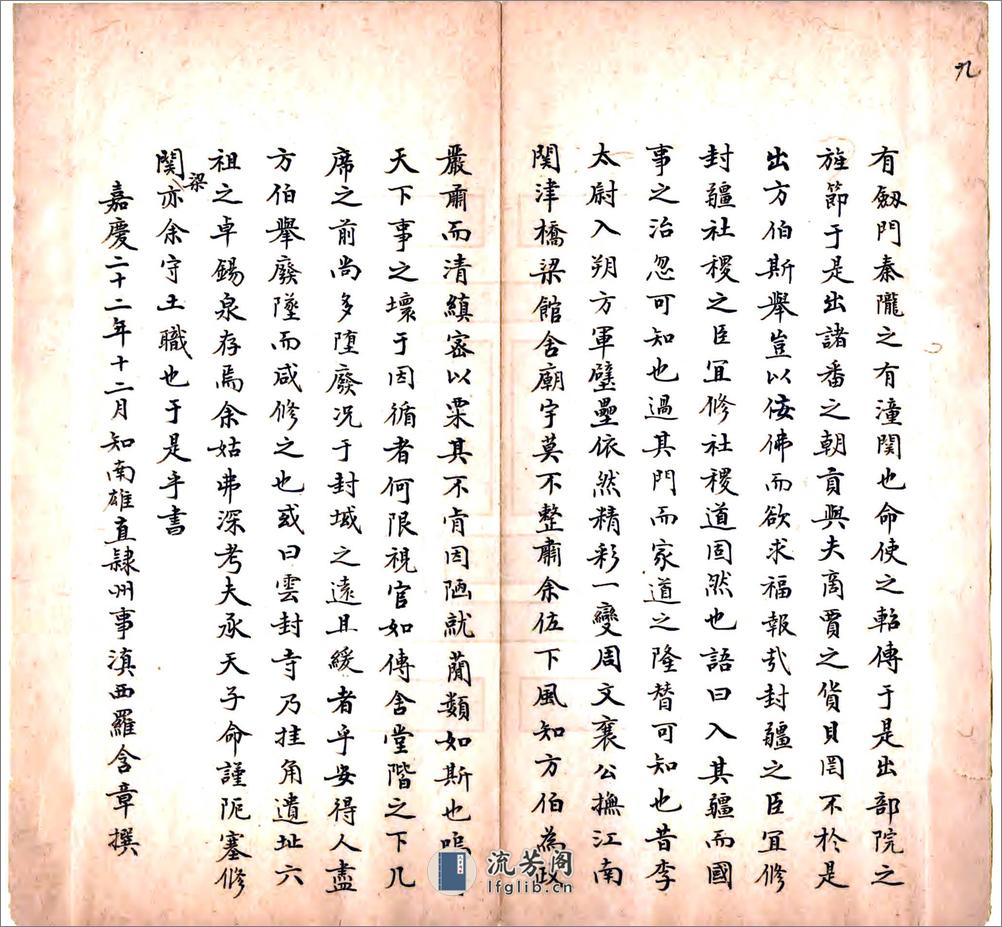 九
有劔門秦隴之有潼関也命使之軺傳于是出部院之
旌節于是出諸番之朝貢與夫商賈之貨貝罔不於是
出方伯斯舉豈以佞佛而欲求福報㦲封疆之臣宜修
封疆社稷之臣宜修社稷道固然也語曰入其疆而國
事之治忽可知也過其門而家道之隆替可知也昔李
太尉入朔方軍壁壘依然精彩一變周文襄公撫江南
関津橋梁館舍廟宇莫不整肅余伍下風知方伯為政
嚴肅而清縝密以栗其不肯因陋就蕑類如斯也嗚
天下事之壞于因循者何限視官如傳舍堂階之下几
席之前尚多墮廢况于封域之遠且緩者乎安得人盡
方伯舉廢墜而咸修之也或曰雲封寺乃挂角遺址六
祖之卓錫泉存焉余姑弗深考夫承天子命謹阨塞修
関梁亦余守土職也于是乎書
嘉慶二十二年十二月知南雄直隷州事滇西羅含章撰
流芳阁
lfglib.cn